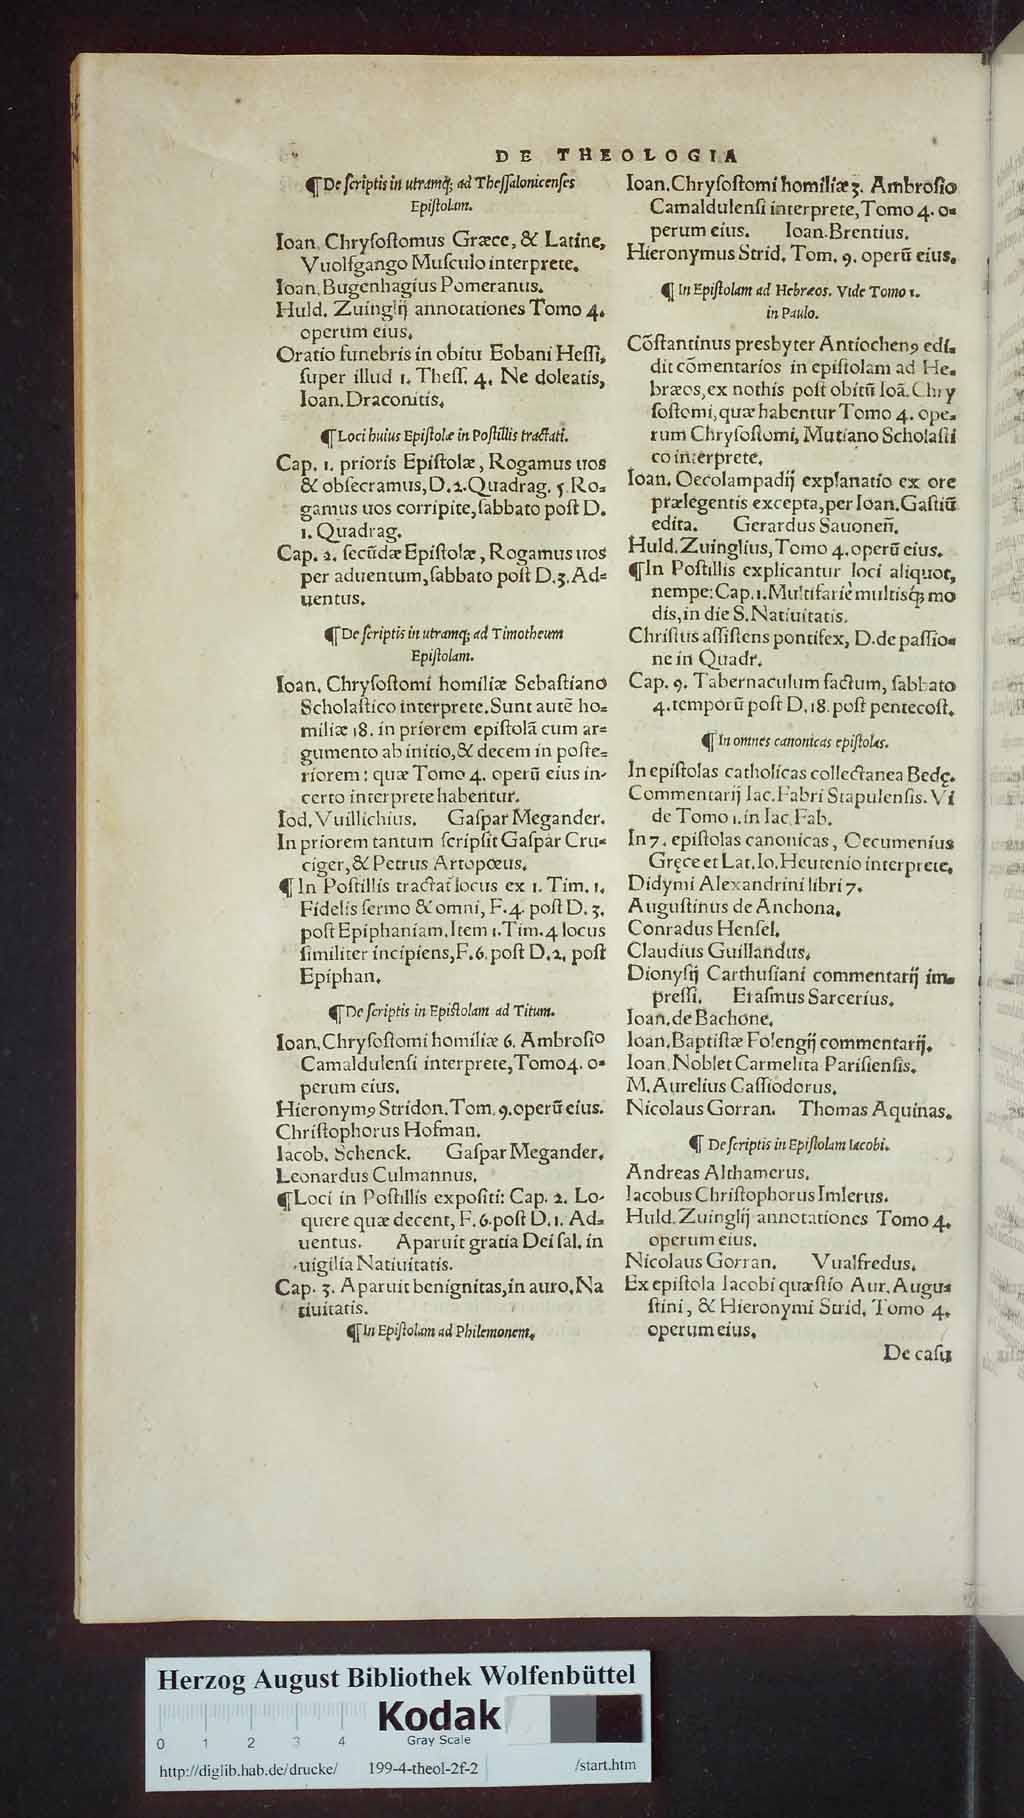 DE THEOLOGIA
¶De ſcriptis in utramq; ad Theſſalonicenſes
Epiſtolam.
Ioan. Chryſoſtomus Græce, & Latine,
Vuolfgango Muſculo interprete.
Ioan. Bugenhagius Pomeranus.
Huld. Zuinglij annotationes Tomo 4.
operum eius.
Oratio funebris in obitu Eobani Heſſi,
ſuper illud 1. Theſſ. 4. Ne doleatis,
Ioan. Draconitis.
¶Loci huius Epiſtolæ in Poſtillis tractati.
Cap. 1. prioris Epiſtolæ, Rogamus uos
& obſecramus, D. 2. Quadrag. 5. Ro=
gamus uos corripite, ſabbato poſt D.
1. Quadrag.
Cap. 2. ſecūdæ Epiſtolæ, Rogamus uos
per aduentum, ſabbato poſt D. 3. Ad=
uentus.
¶De ſcriptis in utramq; ad Timotheum
Epiſtolam.
Ioan. Chryſoſtomi homiliæ Sebaſtiano
Scholaſtico interprete. Sunt autē ho=
miliæ 18. in priorem epiſtolā cum ar=
gumento ab initio, & decem in poſte=
riorem: quæ Tomo 4. operū eius in-
certo interprete habentur.
Iod. Vuillichius. Gaſpar Megander.
In priorem tantum ſcripſit Gaſpar Cru=
ciger, & Petrus Artopœus.
¶In Poſtillis tractat locus ex 1. Tim. 1.
Fidelis ſermo & omni, F. 4. poſt D. 3.
poſt Epiphaniam. Item 1. Tim. 4 locus
ſimiliter incipiens, F. 6. poſt D. 2. poſt
Epiphan.
¶De ſcriptis in Epiſtolam ad Titum.
Ioan. Chryſoſtomi homiliæ 6. Ambroſio
Camaldulenſi interprete, Tomo 4. o=
perum eius.
Hieronymꝰ Stridon. Tom. 9. operū eius.
Chriſtophorus Hofman.
Iacob. Schenck. Gaſpar Megander.
Leonardus Culmannus.
¶Loci in Poſtillis expoſiti: Cap. 2. Lo-
quere quæ decent, F. 6. poſt D. 1. Ad=
uentus. Aparuit gratia Dei ſal. in
uigilia Natiuitatis.
Cap. 3. Aparuit benignitas, in auro. Na
tiuitatis.
¶In Epiſtolam ad Philemonem.
Ioan. Chryſoſtomi homiliæ 3. Ambroſio
Camaldulenſi interprete, Tomo 4. o=
perum eius. Ioan. Brentius.
Hieronymus Strid. Tom. 9. operū eius.
¶In Epiſtolam ad Hebræos. Vide Tomo 1.
in Paulo.
Cōſtantinus presbyter Antiochenꝰ edi=
dit cōmentarios in epiſtolam ad He=
bræos, ex nothis poſt obitū Ioā. Chry
ſoſtomi, quæ habentur Tomo 4. ope=
rum Chryſoſtomi, Mutiano Scholaſti
co interprete.
Ioan. Oecolampadij explanatio ex ore
prælegentis excepta, per Ioan. Gaſtiū
edita. Gerardus Sauoneñ.
Huld. Zuinglius, Tomo 4. operū eius.
¶In Poſtillis explicantur loci aliquot,
nempe: Cap. 1. Multifariè multisq; mo
dis, in die S. Natiuitatis.
Chriſtus aſſiſtens pontifex, D. de paſſio=
ne in Quadr.
Cap. 9. Tabernaculum factum, ſabbato
4. temporū poſt D. 18. poſt pentecoſt.
¶In omnes canonicas epiſtolas.
In epiſtolas catholicas collectanea Bedę.
Commentarij Iac. Fabri Stapulenſis. Vi
de Tomo 1. in Iac. Fab.
In 7. epiſtolas canonicas, Oecumenius
Gręce et Lat. Io. Heutenio interprete.
Didymi Alexandrini libri 7.
Auguſtinus de Anchona.
Conradus Henſel.
Claudius Guillandus.
Dionyſij Carthuſiani commentarij im=
preſſi. Eraſmus Sarcerius.
Ioan. de Bachone.
Ioan. Baptiſtæ Folengij commentarij.
Ioan. Noblet Carmelita Pariſienſis.
M. Aurelius Caſſiodorus.
Nicolaus Gorran. Thomas Aquinas.
¶De ſcriptis in Epiſtolam Iacobi.
Andreas Althamerus.
Iacobus Chriſtophorus Imlerus.
Huld. Zuinglij annotationes Tomo 4.
operum eius.
Nicolaus Gorran. Vualfredus.
Ex epiſtola Iacobi quæſtio Aur. Augu=
ſtini, & Hieronymi Strid. Tomo 4.
operum eius.
De caſu
Herzog August Bibliothek Wolfenbüttel
Kodak
Gray Scale
0 1 2 3 4
http://diglib.hab.de/drucke/ 199-4-theol-2f-2 /start.htm